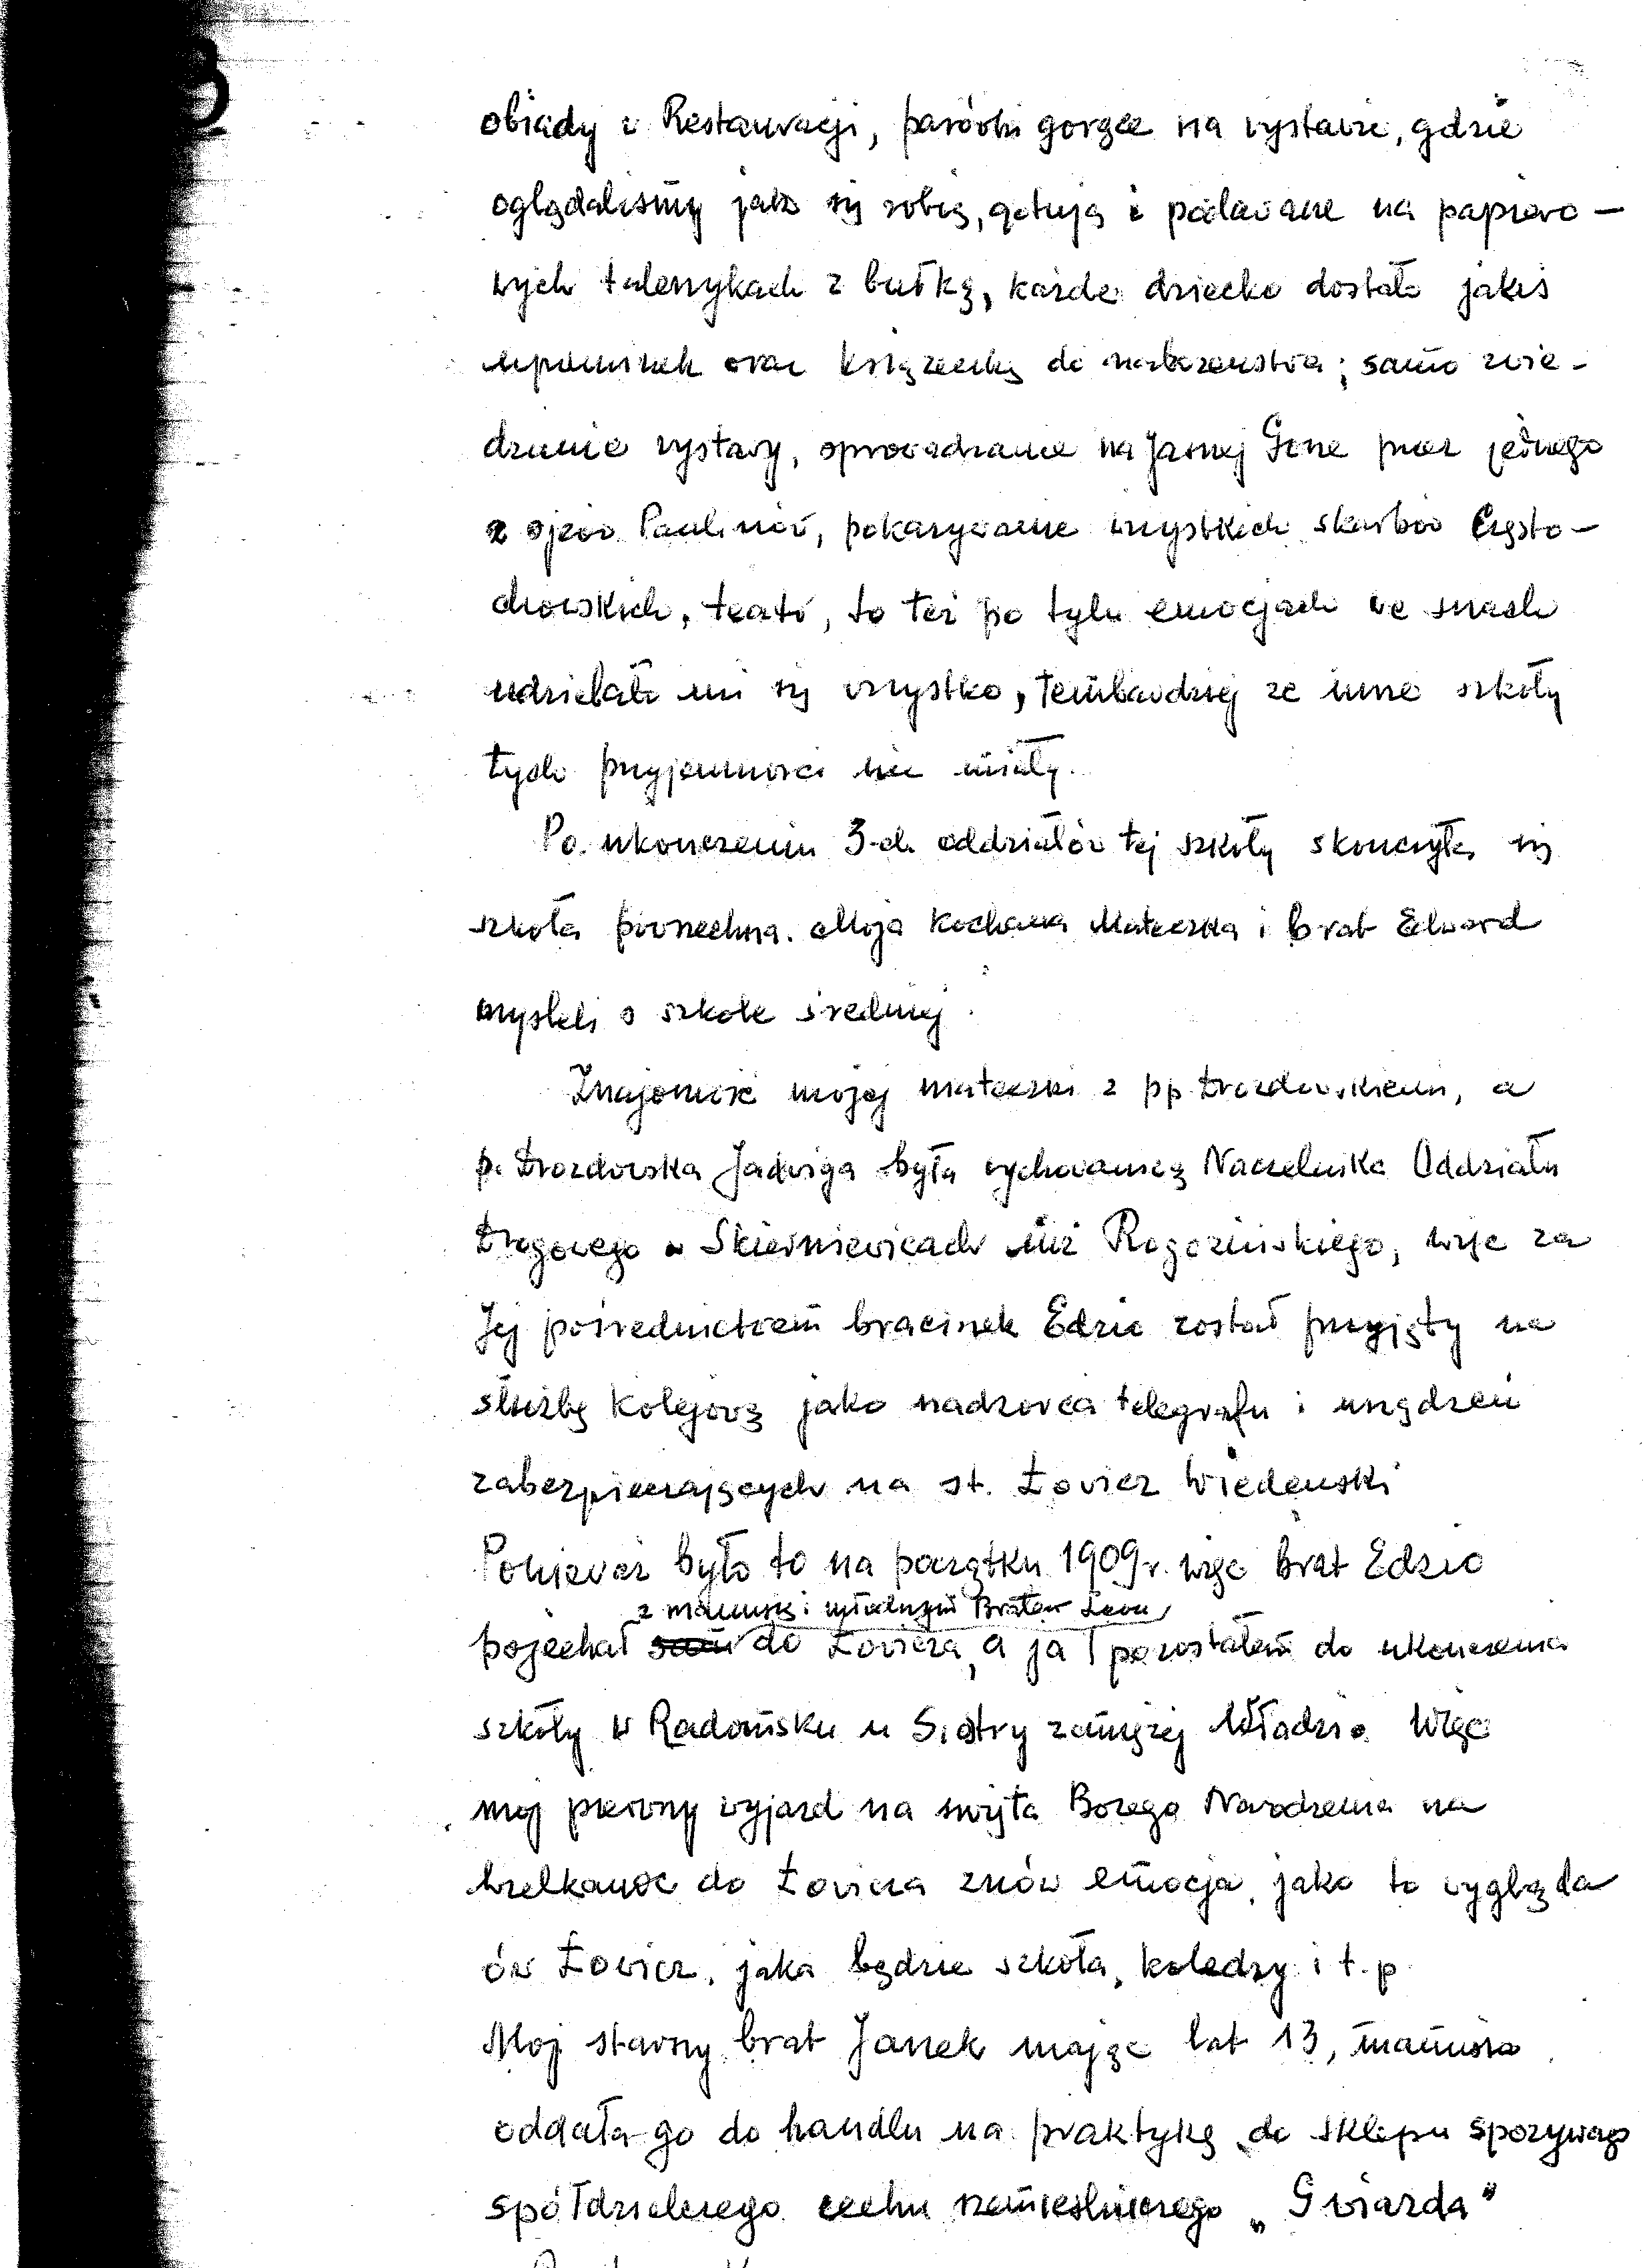 obiady w Restauracji, parówki gorące na wystawie, gdzie
oglądaliśmy jako się robią, gotują i podawane na papiero-
wych talerzykach z bułką, każde dziecko dostało jakiś
upominek oraz książeczkę do nabożeństwa; samo zwie-
dzanie wystawy, oprowadzanie na Jasnej Górze przez jednego
z ojców Paulinów, pokazywanie wszystkich skarbów Często-
chowskich, teatr, to też po tylu emocjach we snach
udzielało mi się wszystko, tembardziej ze inne szkoły
tych przyjemności nie miały.
Po ukończeniu 3-ch oddziałów tej szkoły skończyła się
szkoła powszechna. Moja Kochana Mateczka i brat Edward
myśleli o szkole średniej.
Znajomość mojej mateczki z pp. Drozdowskiemi, a
p. Drozdowska Jadwiga była wychowanicą Naczelnika Oddziału
Drogowego w Skierniewicach inż Rogozińskiego, więc za
Jej pośrednictwem braciszek Edzio został przyjęty na
służbę Kolejową jako nadzorca telegrafu i urządzeń
zabezpieczających na st. Łowicz Wiedeński
Ponieważ było to na początku 1909 r. więc brat Edzio
z mamusią i młodszym Bratem
pojechał sam do Łowicza, a ja pozostałem do ukończenia
szkoły w Radomsku u Siostry zamężnej Władzi. Więc
mój pierwszy wyjazd na święta Bożego Narodzenia na
Wielkanoc do Łowicza znów emocja, jako to wygląda
ów Łowicz, jaka będzie szkoła, koledzy i t. p
Mój starszy brat Janek mając lat 13, mamusia
oddała go do handlu na praktykę do sklepu spożywczego
spółdzielczego cechu rzemieślniczego „Gwiazda"